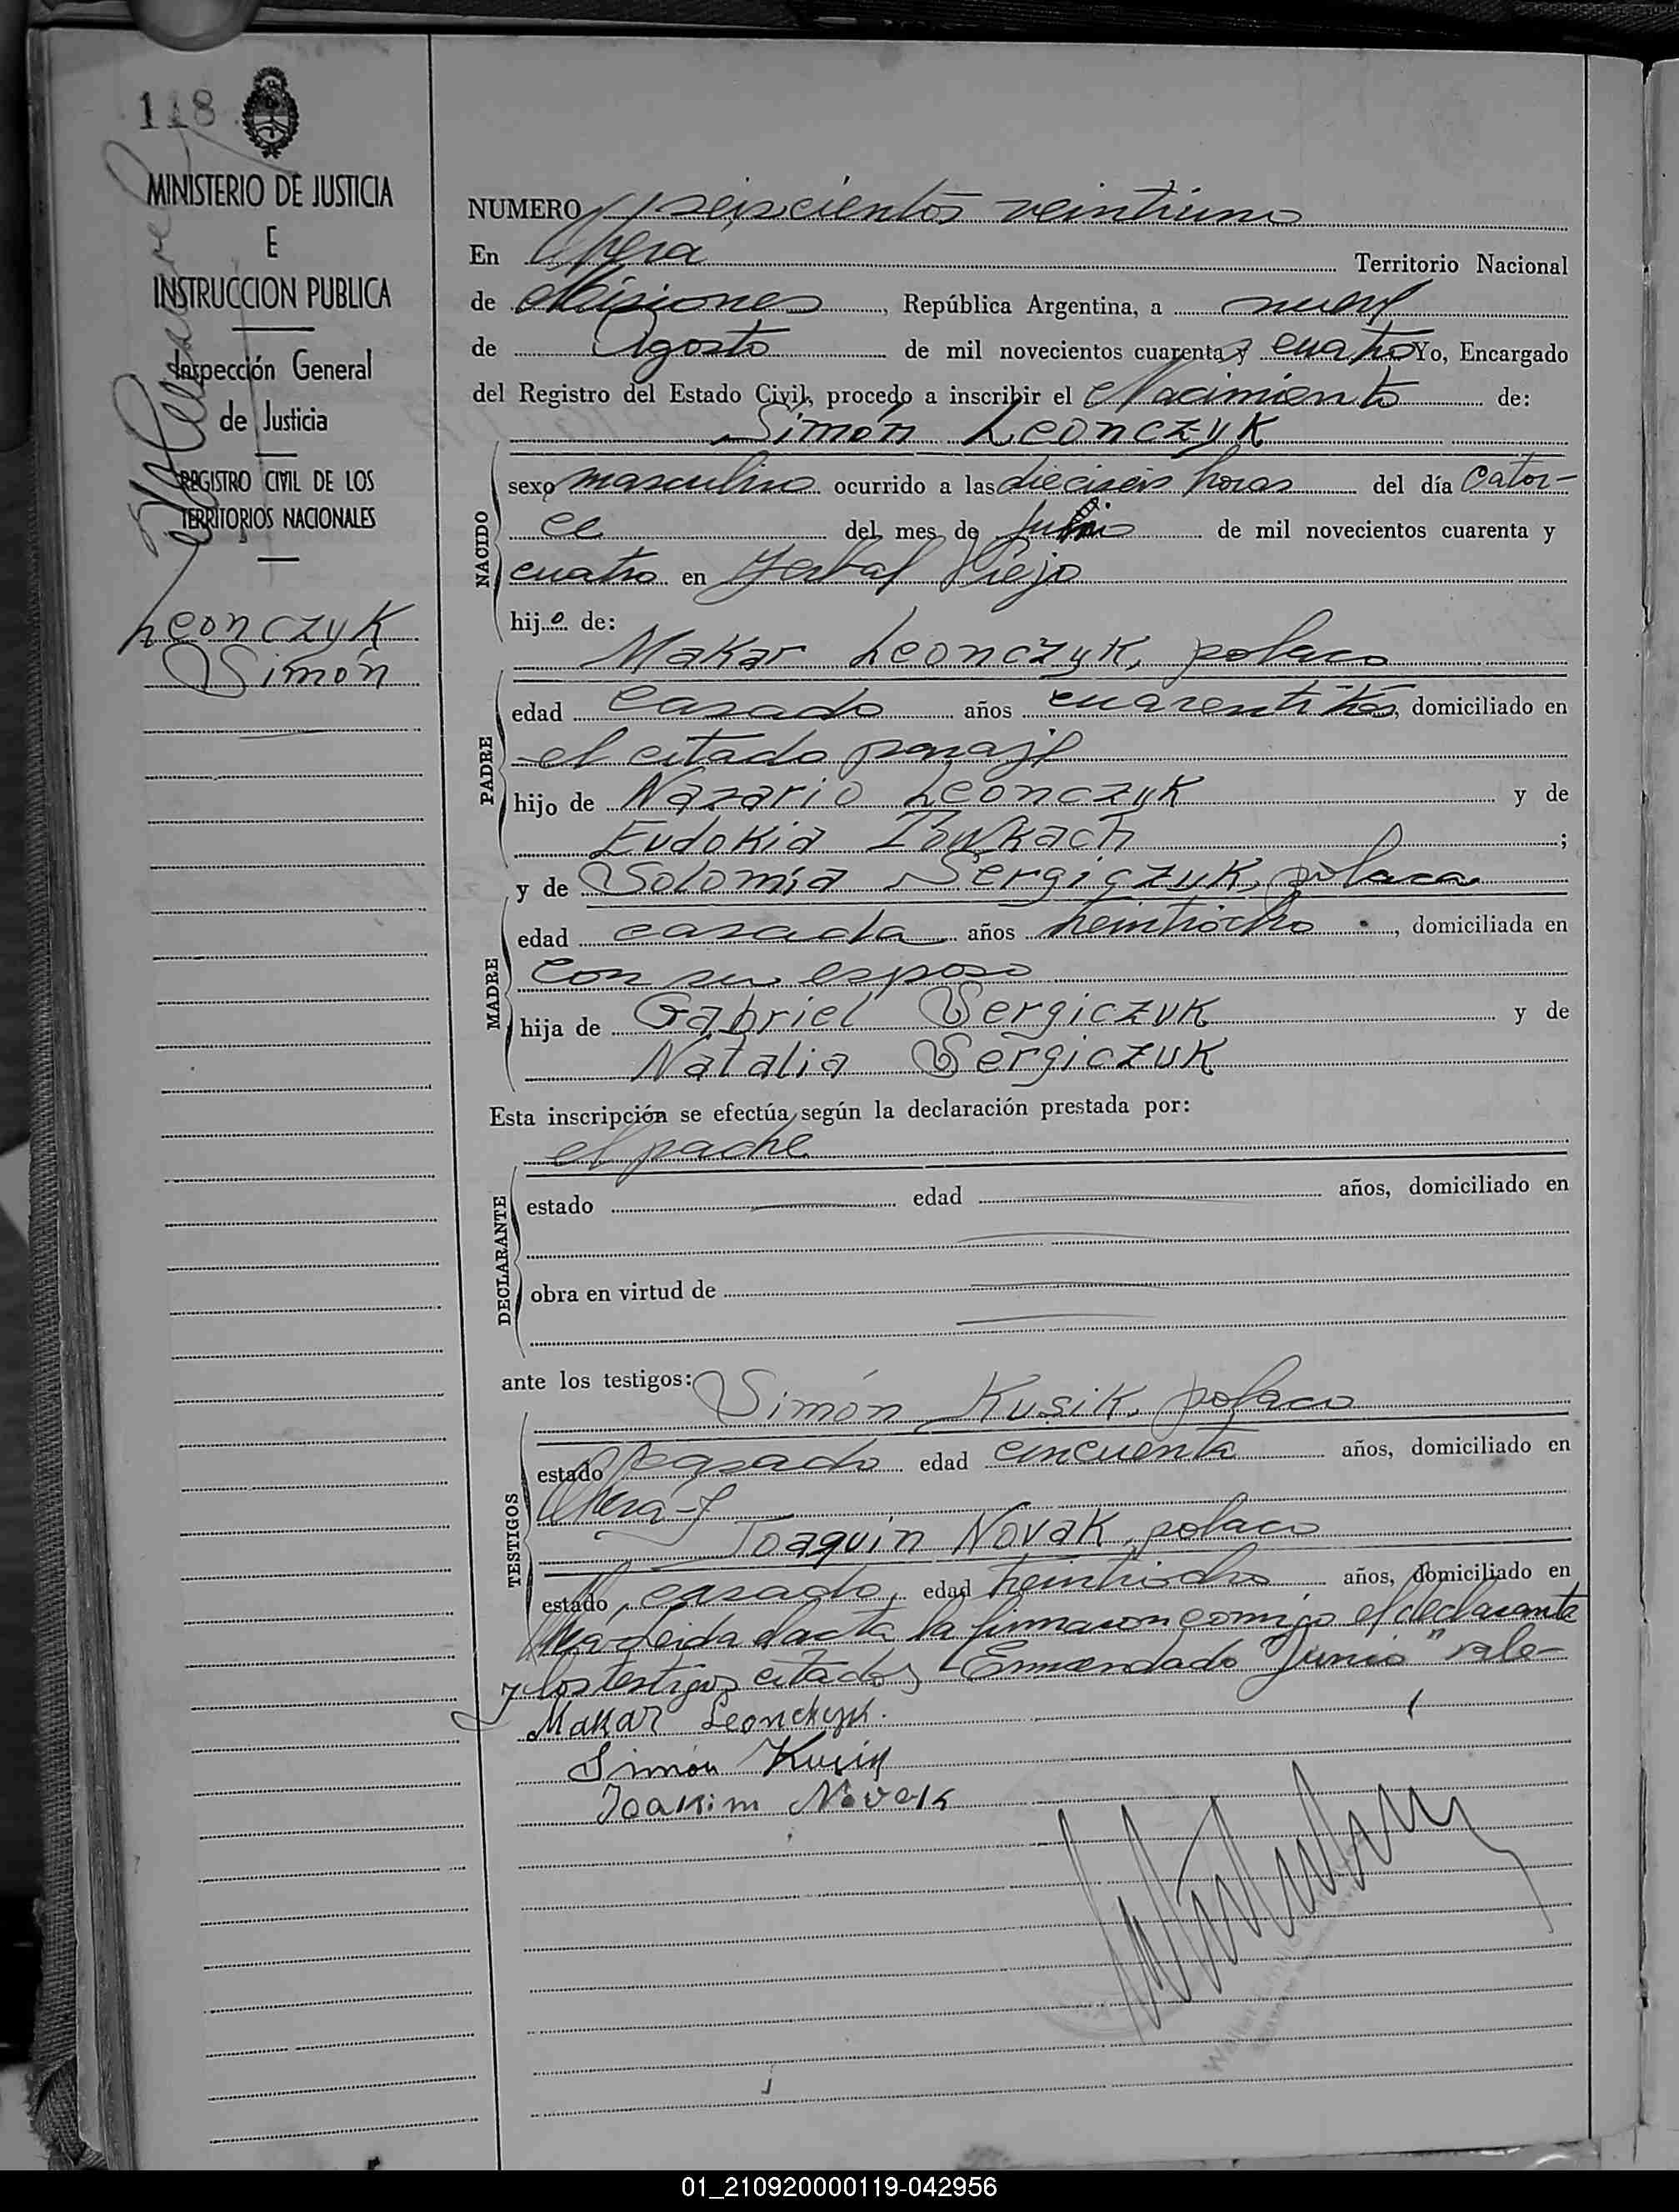 118
MINISTERIO DE JUSTICIA
E
INSTRUCCION PUBLICA
Inspección General
de Justicia
REGISTRO CIVIL DE LOS
TERRITORIOS NACIONALES
Leonczyk
Simón
NUMERO seiscientos veintiuno
En Obera Territorio Nacional
de Misiones, República Argentina, a nueve
de Agosto de mil novecientos cuarenta y cuatro Yo, Encargado
del Registro del Estado Civil, procedo a inscribir el Nacimiento de:
Simón Leonczyk
NACIDO
sexo masculino ocurrido a las dieciseis horas del día cator-
ce del mes de junio de mil novecientos cuarenta y
cuatro en Yerbal Viejo
hijo de:
Makar Leonczyk, polaco
PADRE
edad casado años cuarentitrés, domiciliado en
el citado paraje
hijo de Nazario Leonczyk y de
Eudokia ;
y de Solomia Sergiczuk, polaca
MADRE
edad casada años treintiocho, domiciliada en
con su esposo
hija de Gabriel Sergiczuk y de
Natalia Sergiczuk
Esta inscripción se efectúa según la declaración prestada por:
el padre
DECLARANTE
estado edad años, domiciliado en
obra en virtud de
ante los testigos:
Simón Kusik, polaco
TESTIGOS
estado casado edad cincuenta años, domiciliado en
Obera-y
Joaquin Novak, polaco
estado casado, edad treintiocho años, domiciliado en
Obera Leida el acta la firmaron comigo el declarante
y los testigos citados Enmendado "Junio" vale-
Makar Leonczyk.
Simón Kusik
Joakim Novak
01_210920000119-042956